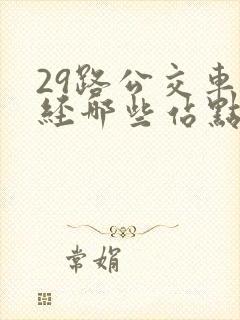 29路公交車
經那些佔點
常娟